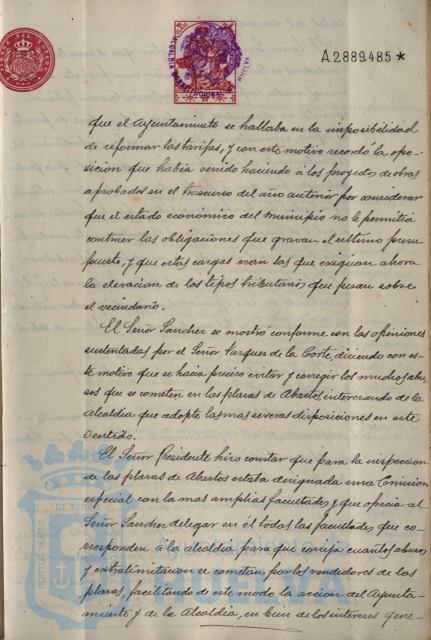 A.2.889.485 *
que el Ayuntamiento se hallaba en la imposibilidad
de reformar las tarifas, y con este motivo recordó la opo-
sicion que habia venido haciendo á los proyectos de obras
aprobados en el trascurso del año anterior por considerar
que el estado económico del Municipio no le permitia
contraer las obligaciones que gravan el ultimo presu
puesto, y que estas cargas eran las que exigian ahora
la elevacion de los tipos tributarios que pesan sobre
el vecindario.
El Señor Sanchez se mostró conforme con las opiniones
sustentadas por el Señor Vazquez de la Corte, diciendo con es-
te motivo que se hacia preciso evitar y corregir los muchos abu-
sos que se cometen en las plazas de Abastos interesando de la
Alcaldia que adopte las mas severas disposiciones en este
sentido.
El Señor Presidente hizo constar que para la inspeccion
de las plazas de Abastos estaba designada una Comision
especial con las mas amplias facultades y que ofrecia al
Señor Sanchez delegar en él todas las facultades que co-
rresponden á la alcaldia para que corrija cuantos abusos
y extralimitacion se cometan por los vendedores de las
plazas, facilitando de este modo la accion del Ayunta-
miento y de la Alcaldia, en bien de los intereses gene-